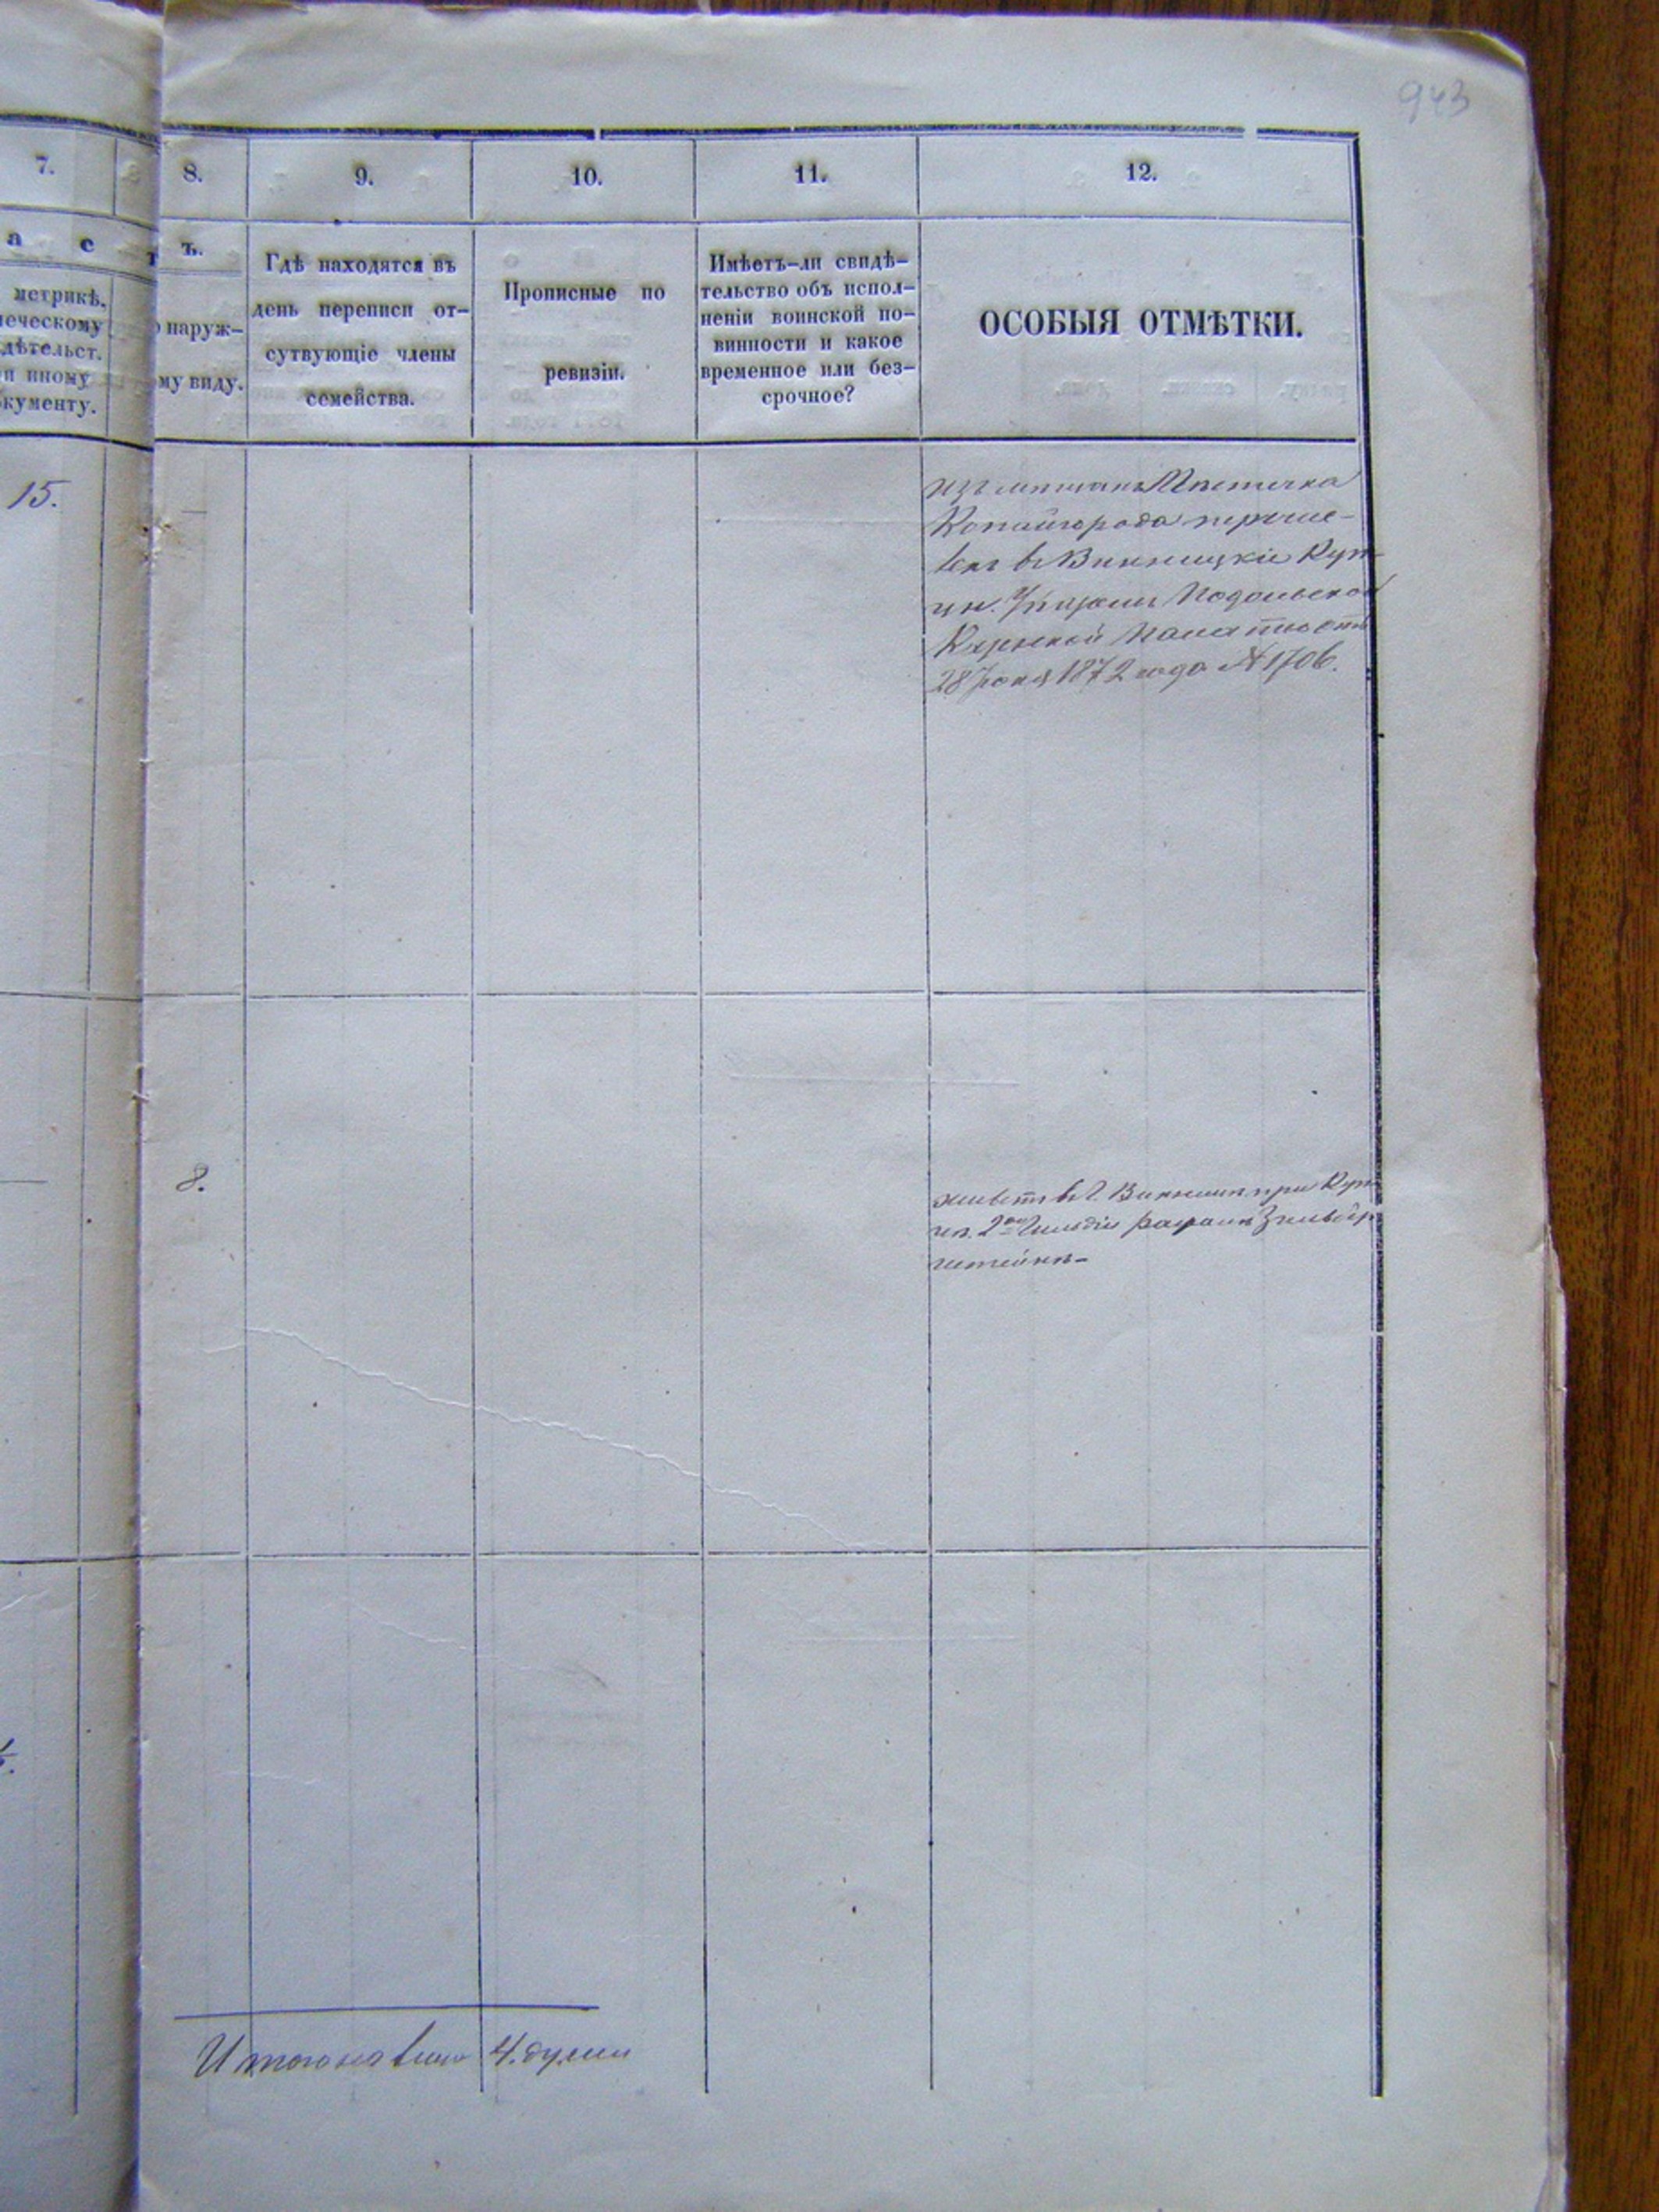 943
7.
8.
9.
10.
11.
12.
а с т ъ.
метрикѣ,
ическому
дѣтельст.
и иному
кументу.
о наруж-
му виду.
Гдѣ находятся въ
день переписи от-
сутвующіе члены
семейства.
Прописные по
ревизіи.
Имѣетъ-ли свидѣ-
тельство объ испол-
неніи воинской по-
винности и какое
временное или без-
срочное?
ОСОБЫЯ ОТМѢТКИ.
15.
изъ мѣщанъ Мѣстечка
Копайгорода перечис-
въ Винницкіе Куп
Подольской
Казенной Палаты отъ
28 Іюня 1872 года № 1706.
8.
живетъ въ г. Винницѣ при Куп
2ой Гильдіи
штейнѣ-
Итого на лицо 4. души